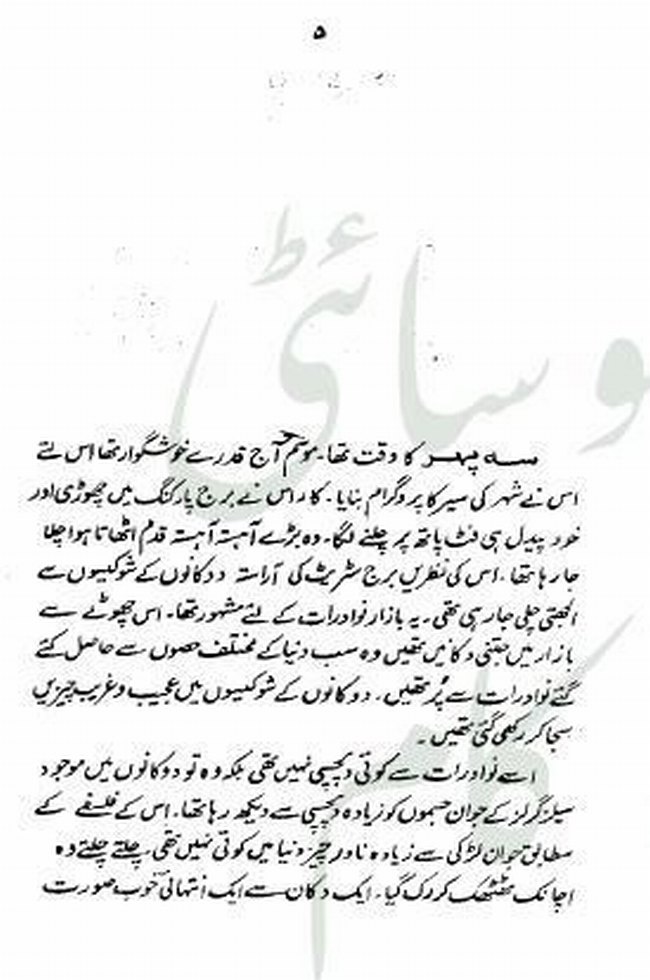 ۵
سہ پہر کا وقت تھا۔ موسم آج قدرے خوشگوار تھا اس لئے
اس نے شہر کی سیر کا پروگرام بنایا۔ کار اس نے برج پارکنگ میں چھوڑی اور
خود پیدل ہی فٹ پاتھ پر چلنے لگا۔ وہ بڑے آہستہ آہستہ قدم اٹھاتا ہوا چلا
جا رہا تھا۔ اس کی نظریں برج سٹریٹ کی آراستہ دوکانوں کے شوکیسوں سے
الجھتی چلی جا رہی تھی۔ یہ بازار نوادرات کے لئے مشہور تھا۔ اس چھوٹے سے
بازار میں جتنی دکانیں تھیں وہ سب دنیا کے مختلف حصوں سے حاصل کئے
گئے نوادرات سے پُر تھیں۔ دوکانوں کے شوکیسوں میں عجیب و غریب چیزیں
سجا کر رکھی گئی تھیں۔
اسے نوادرات سے کوئی دلچسپی نہیں تھی بلکہ وہ تو دوکانوں میں موجود
سیلز گرلز کے جوان جسموں کو زیادہ دلچسپی سے دیکھ رہا تھا۔ اس کے فلسفے کے
مطابق جوان لڑکی سے زیادہ نادر چیز دنیا میں کوئی نہیں تھی۔ چلتے چلتے وہ
اچانک ٹھٹھک کر رک گیا۔ ایک دکان سے ایک انتہائی خوب صورت
وسائٹی
کام